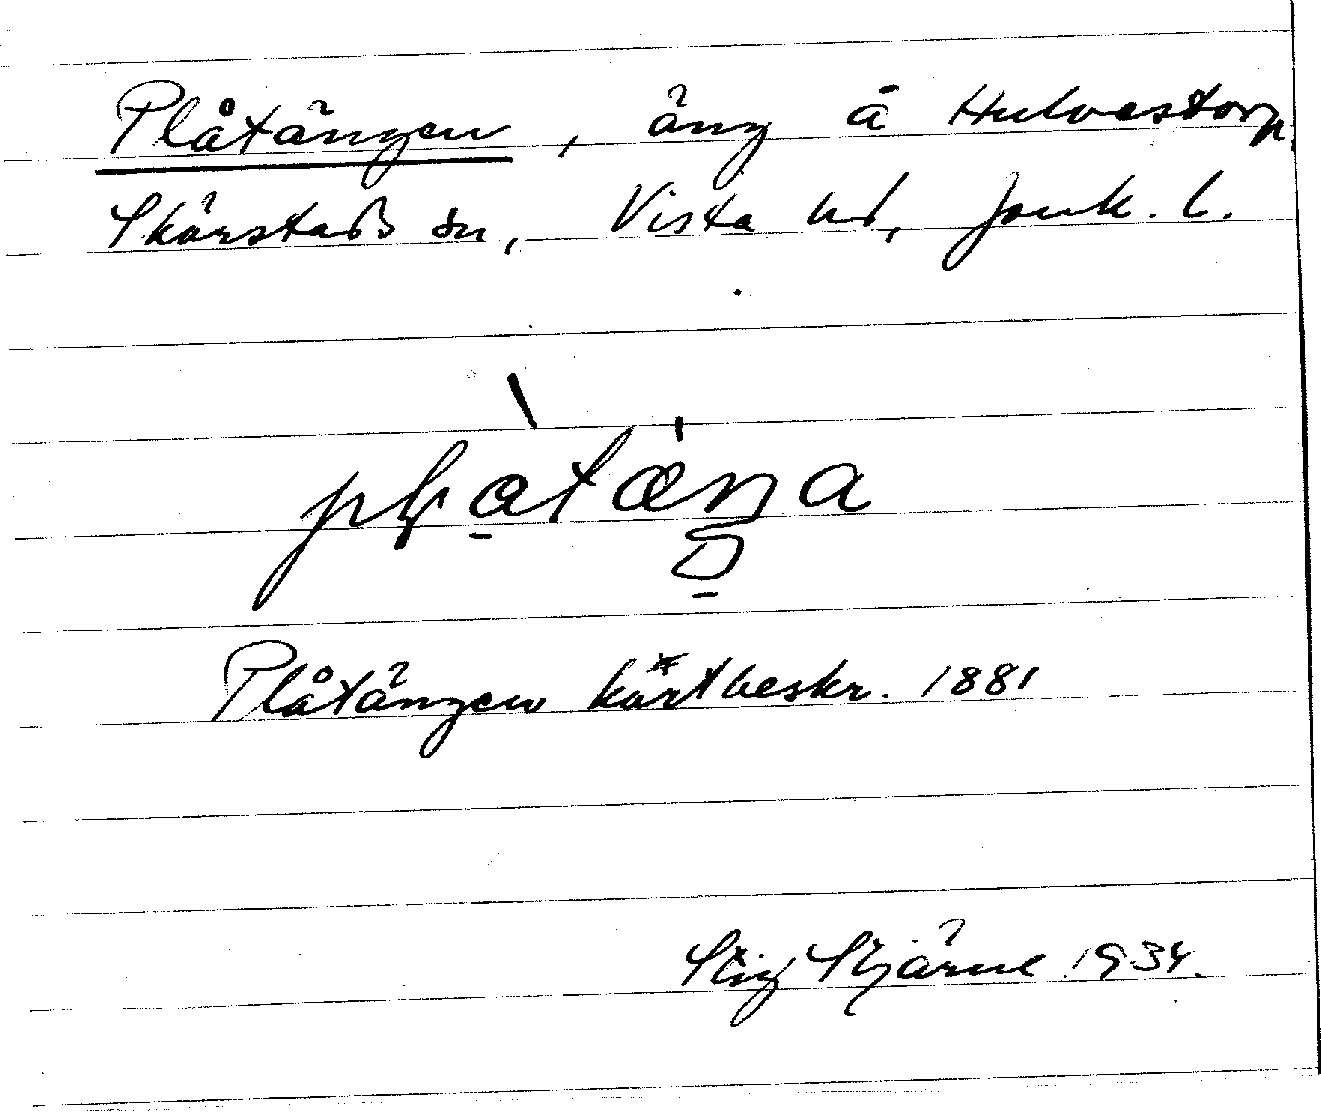 Plåtängen, äng å Hulvestorp,
Skärstads sn, Vista hd, Jönk. l.
plạ̊tæŋa
Plåtängen kärtbeskr. 1881
Stig Stjärne 1934.